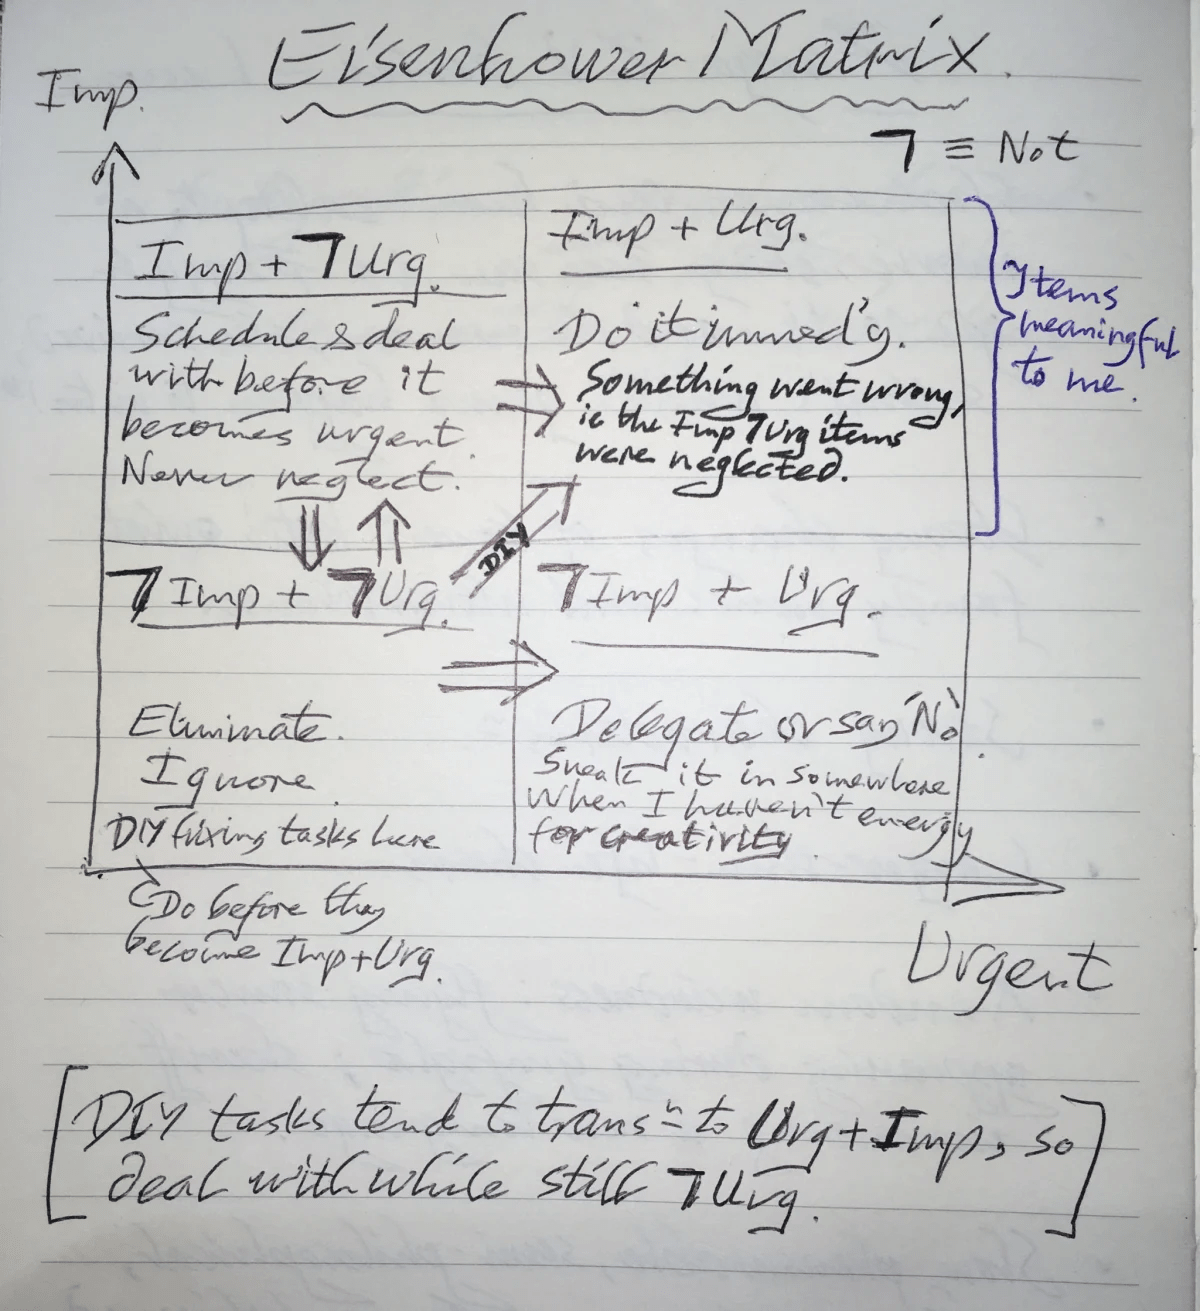 Eisenhower Matrix.
Imp.
¬ ≡ Not
Imp + ¬Urg.
Schedule & deal
with before it
becomes urgent.
Never neglect.
Imp + Urg.
Do it immed'y.
Something went wrong,
ie the Imp ¬Urg items
were neglected.
Items
meaningful
to me.
DIY
¬Imp + ¬Urg.
Eliminate.
Ignore.
DIY fixing tasks here
Do before they
become Imp+Urg.
¬Imp + Urg.
Delegate or say 'No'.
Sneak it in somewhere
when I haven't energy
for creativity.
Urgent
[DIY tasks tend to trans⁼ⁿ to Urg+Imp, so
deal with while still ¬Urg.]